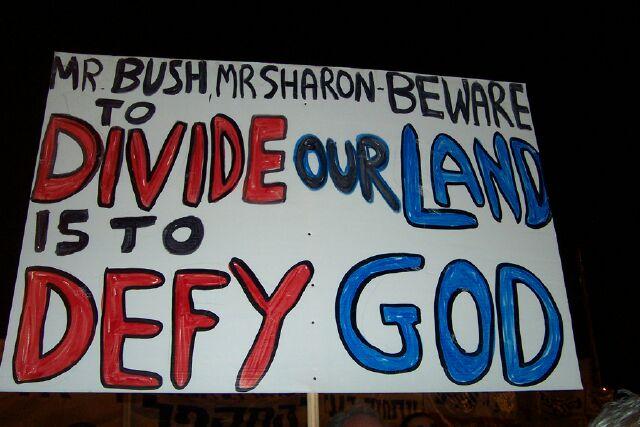 MR. BUSH, MR SHARON - BEWARE
TO
DIVIDE OUR LAND
IS TO
DEFY GOD